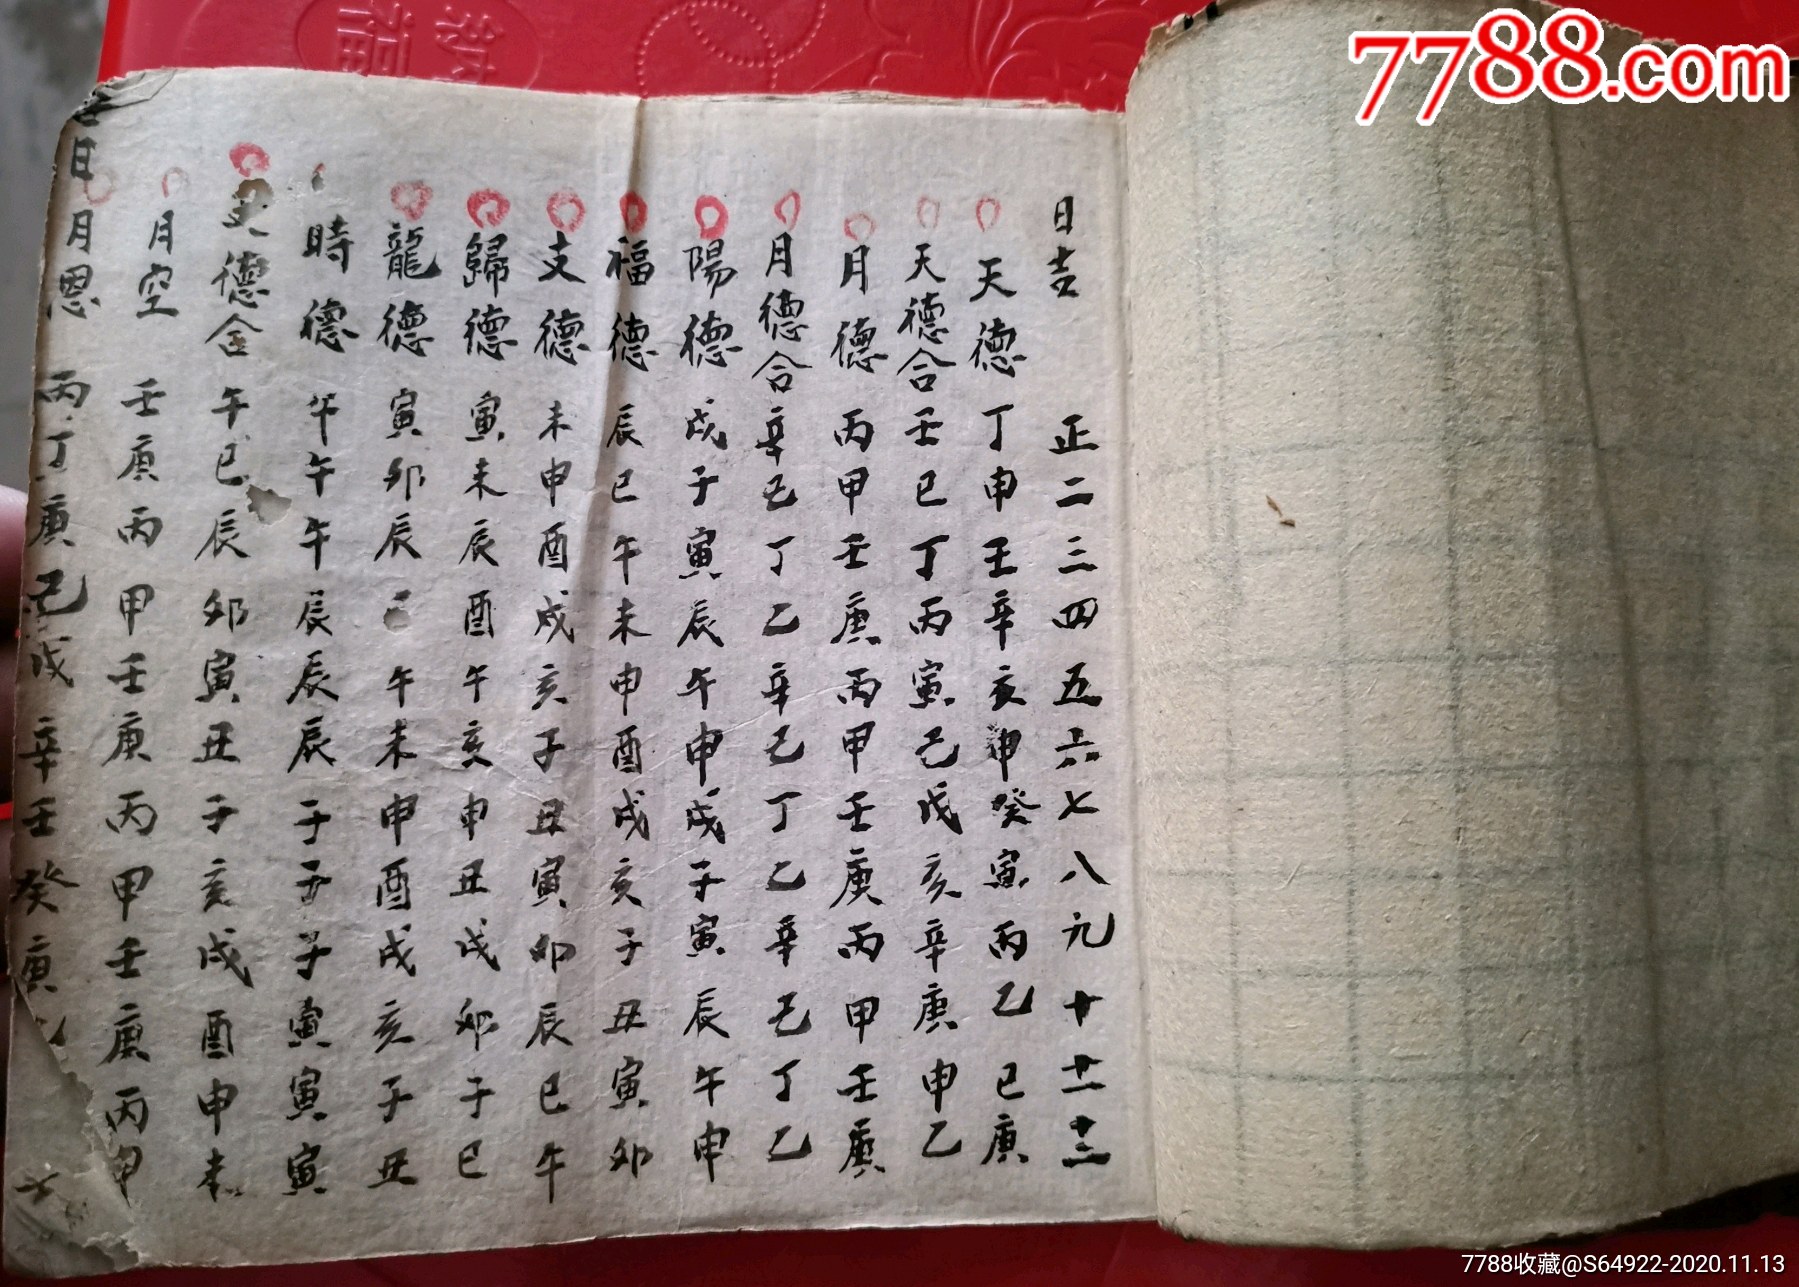 7788.com
日吉 正二三四五六七八九十十一十二
天德 丁申壬辛亥申癸寅丙乙巳庚
天德合 壬巳丁丙寅己戊亥辛庚申乙
月德 丙甲壬庚丙甲壬庚丙甲壬庚
月德合 辛己丁乙辛己丁乙辛己丁乙
陽德 戌子寅辰午申戌子寅辰午申
福德 辰巳午未申酉戌亥子丑寅卯
支德 未申酉戌亥子丑寅卯辰巳午
歸德 寅未辰酉午亥申丑戌卯子巳
龍德 寅卯辰巳午未申酉戌亥子丑
時德 午午午辰辰辰子子子寅寅寅
德合 午巳辰卯寅丑子亥戌酉申未
月空 壬庚丙甲壬庚丙甲壬庚丙甲
日
月恩 丙丁庚己戊辛壬癸庚
7788收藏@S64922-2020.11.13